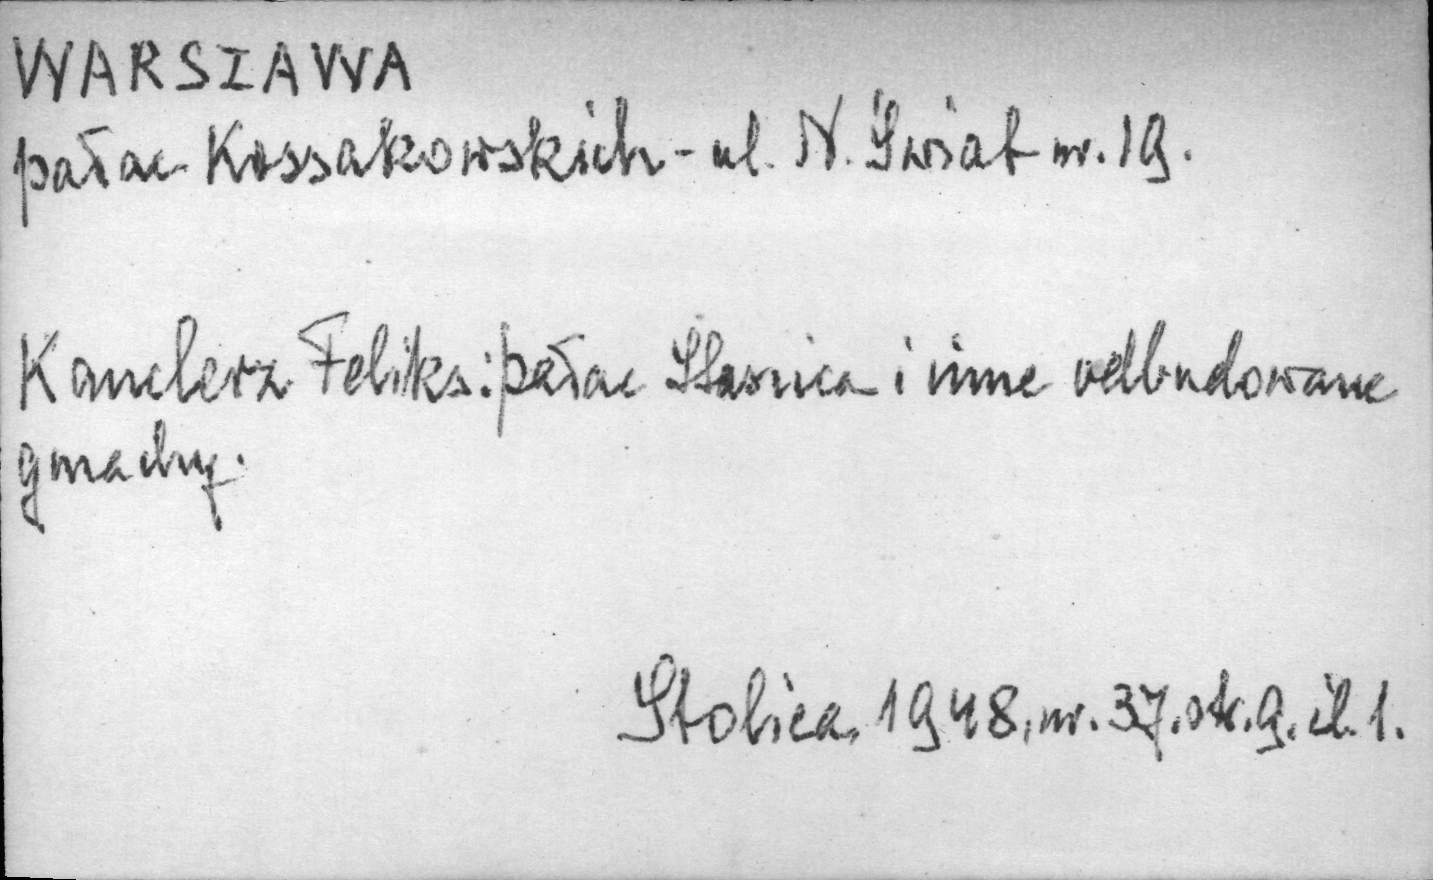 WARSZAWA
pałac Kossakowskich - ul. N. Świat nr. 19.
Kanclerz Feliks: pałac Staszica i inne odbudowane
gmachy.
Stolica, 1948, nr. 37. str. 9. il. 1.